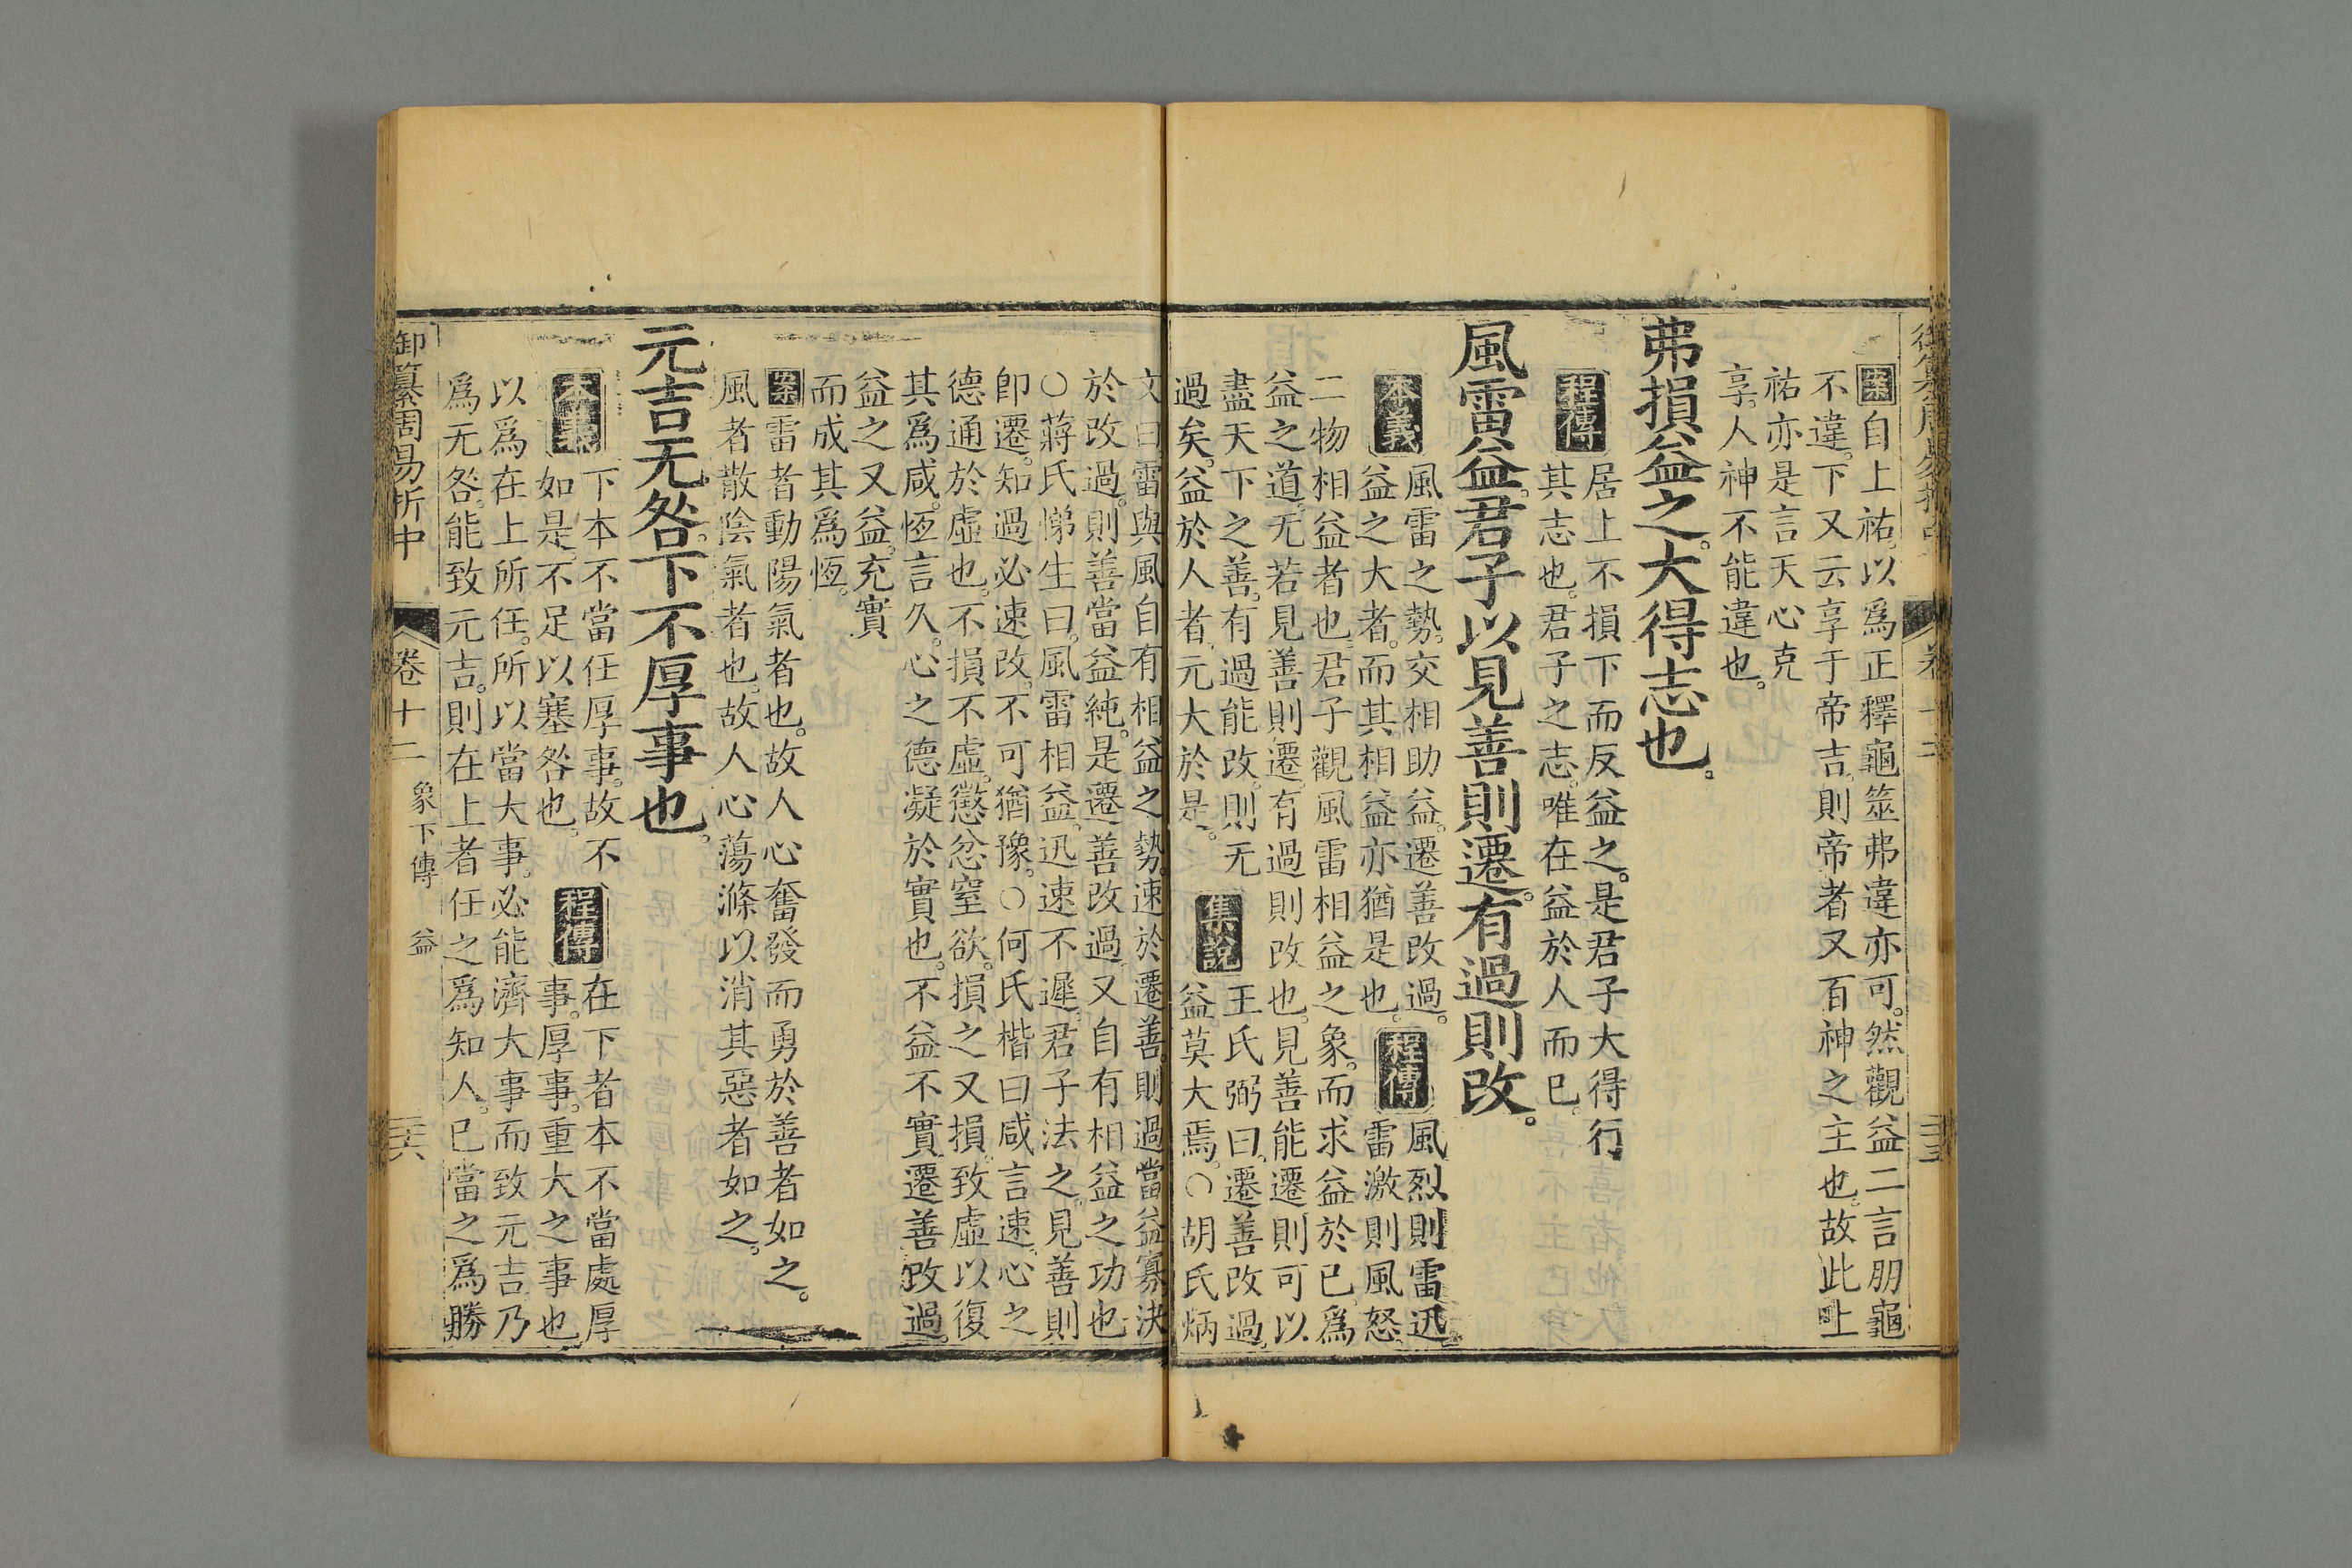 案自上祐。以爲正釋龜筮弗違亦可。然觀益二言朋龜
不違。下又云享于帝吉。則帝者又百神之主也。故此上
祐亦是言天心克
享。人神不能違也。
弗損益之。大得志也。
程傳
居上不損下而反益之。是君子大得行
其志也。君子之志。唯在益於人而已。
風雷益。君子以見善則遷。有過則改。
本義
風雷之勢。交相助益。遷善改過。
益之大者。而其相益亦猶是也。
程傳
風烈則雷迅。
雷激則風怒。
二物相益者也。君子觀風雷相益之象。而求益於己。爲
益之道。无若見善則遷。有過則改也。見善能遷。則可以
盡天下之善。有過能改。則无
過矣。益於人者。元大於是。
集說
王氏弼曰。遷善改過。
益莫大焉。○胡氏炳
文曰。雷與風自有相益之勢。速於遷善。則過當益寡。決
於改過。則善當益純。是遷善改過。又自有相益之功也
○蔣氏悌生曰。風雷相益。迅速不遲。君子法之。見善則
卽遷。知過必速改。不可猶豫。○何氏楷曰。咸言速。心之
德通於虛也。不損不虛。懲忿窒欲。損之又損。致虛以復
其爲咸。恆言久。心之德凝於實也。不益不實。遷善改過。
益之又益。充實
而成其爲恆。
案雷者動陽氣者也。故人心奮發而勇於善者如之。
風者散陰氣者也。故人心蕩滌以消其惡者如之。
元吉无咎。下不厚事也。
本義
下本不當任厚事。故不
如是。不足以塞咎也。
程傳
在下者本不當處厚
事。厚事。重大之事也。
以爲在上所任。所以當大事。必能濟大事而致元吉。乃
爲无咎。能致元吉。則在上者任之爲知人。已當之爲勝
御纂周易折中
卷十二
象下傳
益
三六